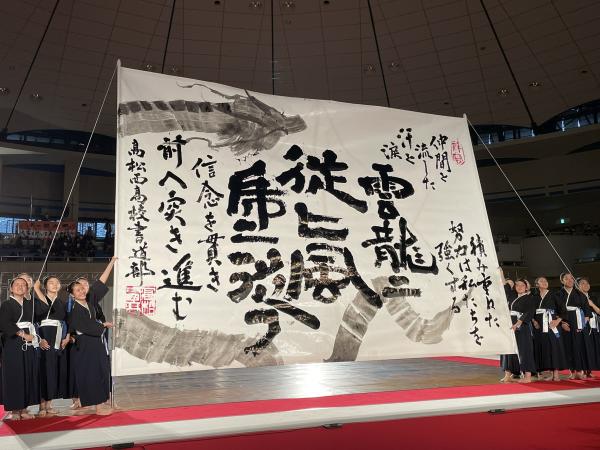 仲間と
流した
汗と涙
積み重ねた
努力は私たちを
強くする
雲龍
従 風
信念を貫き
前へ突き進む
高松西高校書道部